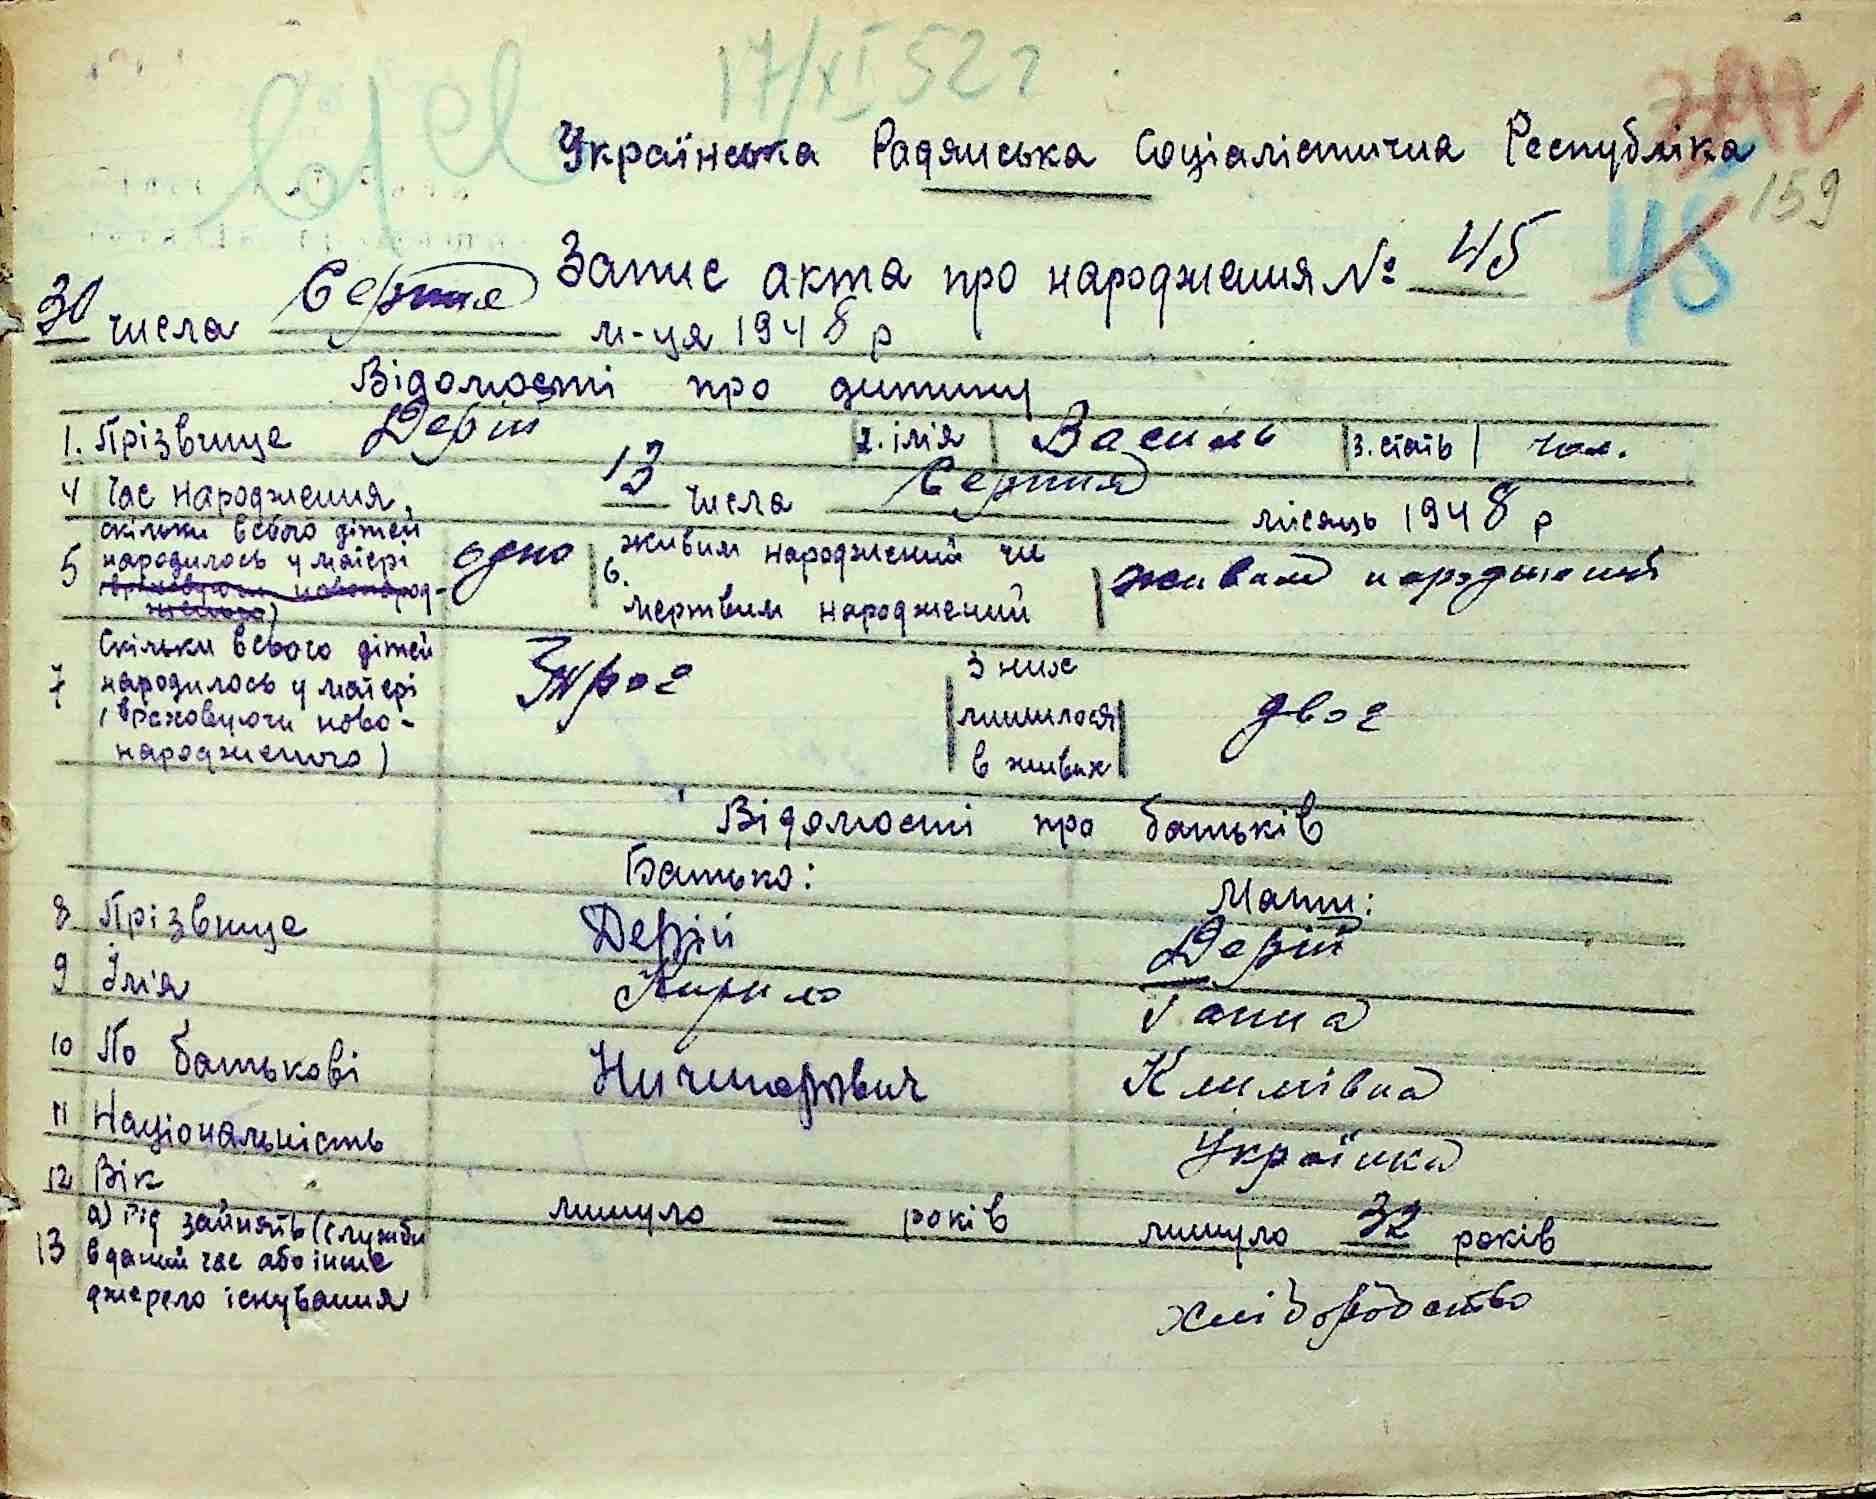 17/XI 52 г
Українська Радянська Соціалістична Республіка
159
Запис акта про народження № 45
45
30 числа Серпня м-ця 1948 р
Відомості про дитину
1. Прізвище Дерій 2. ім'я Василь 3. стать чол.
4 Час народження, 13 числа Серпня місяць 1948 р
5 скільки всього дітей народилось у матері (враховуючи новонародженого) одно 6. живим народжений чи мертвим народжений живим народжений
7 Скільки всього дітей народилось у матері (враховуючи новонародженого) Троє З них лишилося в живих двоє
Відомості про батьків
Батько: Мати:
8 Прізвище Дерій Дерій
9 Ім'я Кирило Ганна
10 По батькові Ничипорович Климівна
11 Національність Українка
12 Вік минуло — років минуло 32 років
13 а) Рід занять (служби
в даний час або інше
джерело існування хліборобство